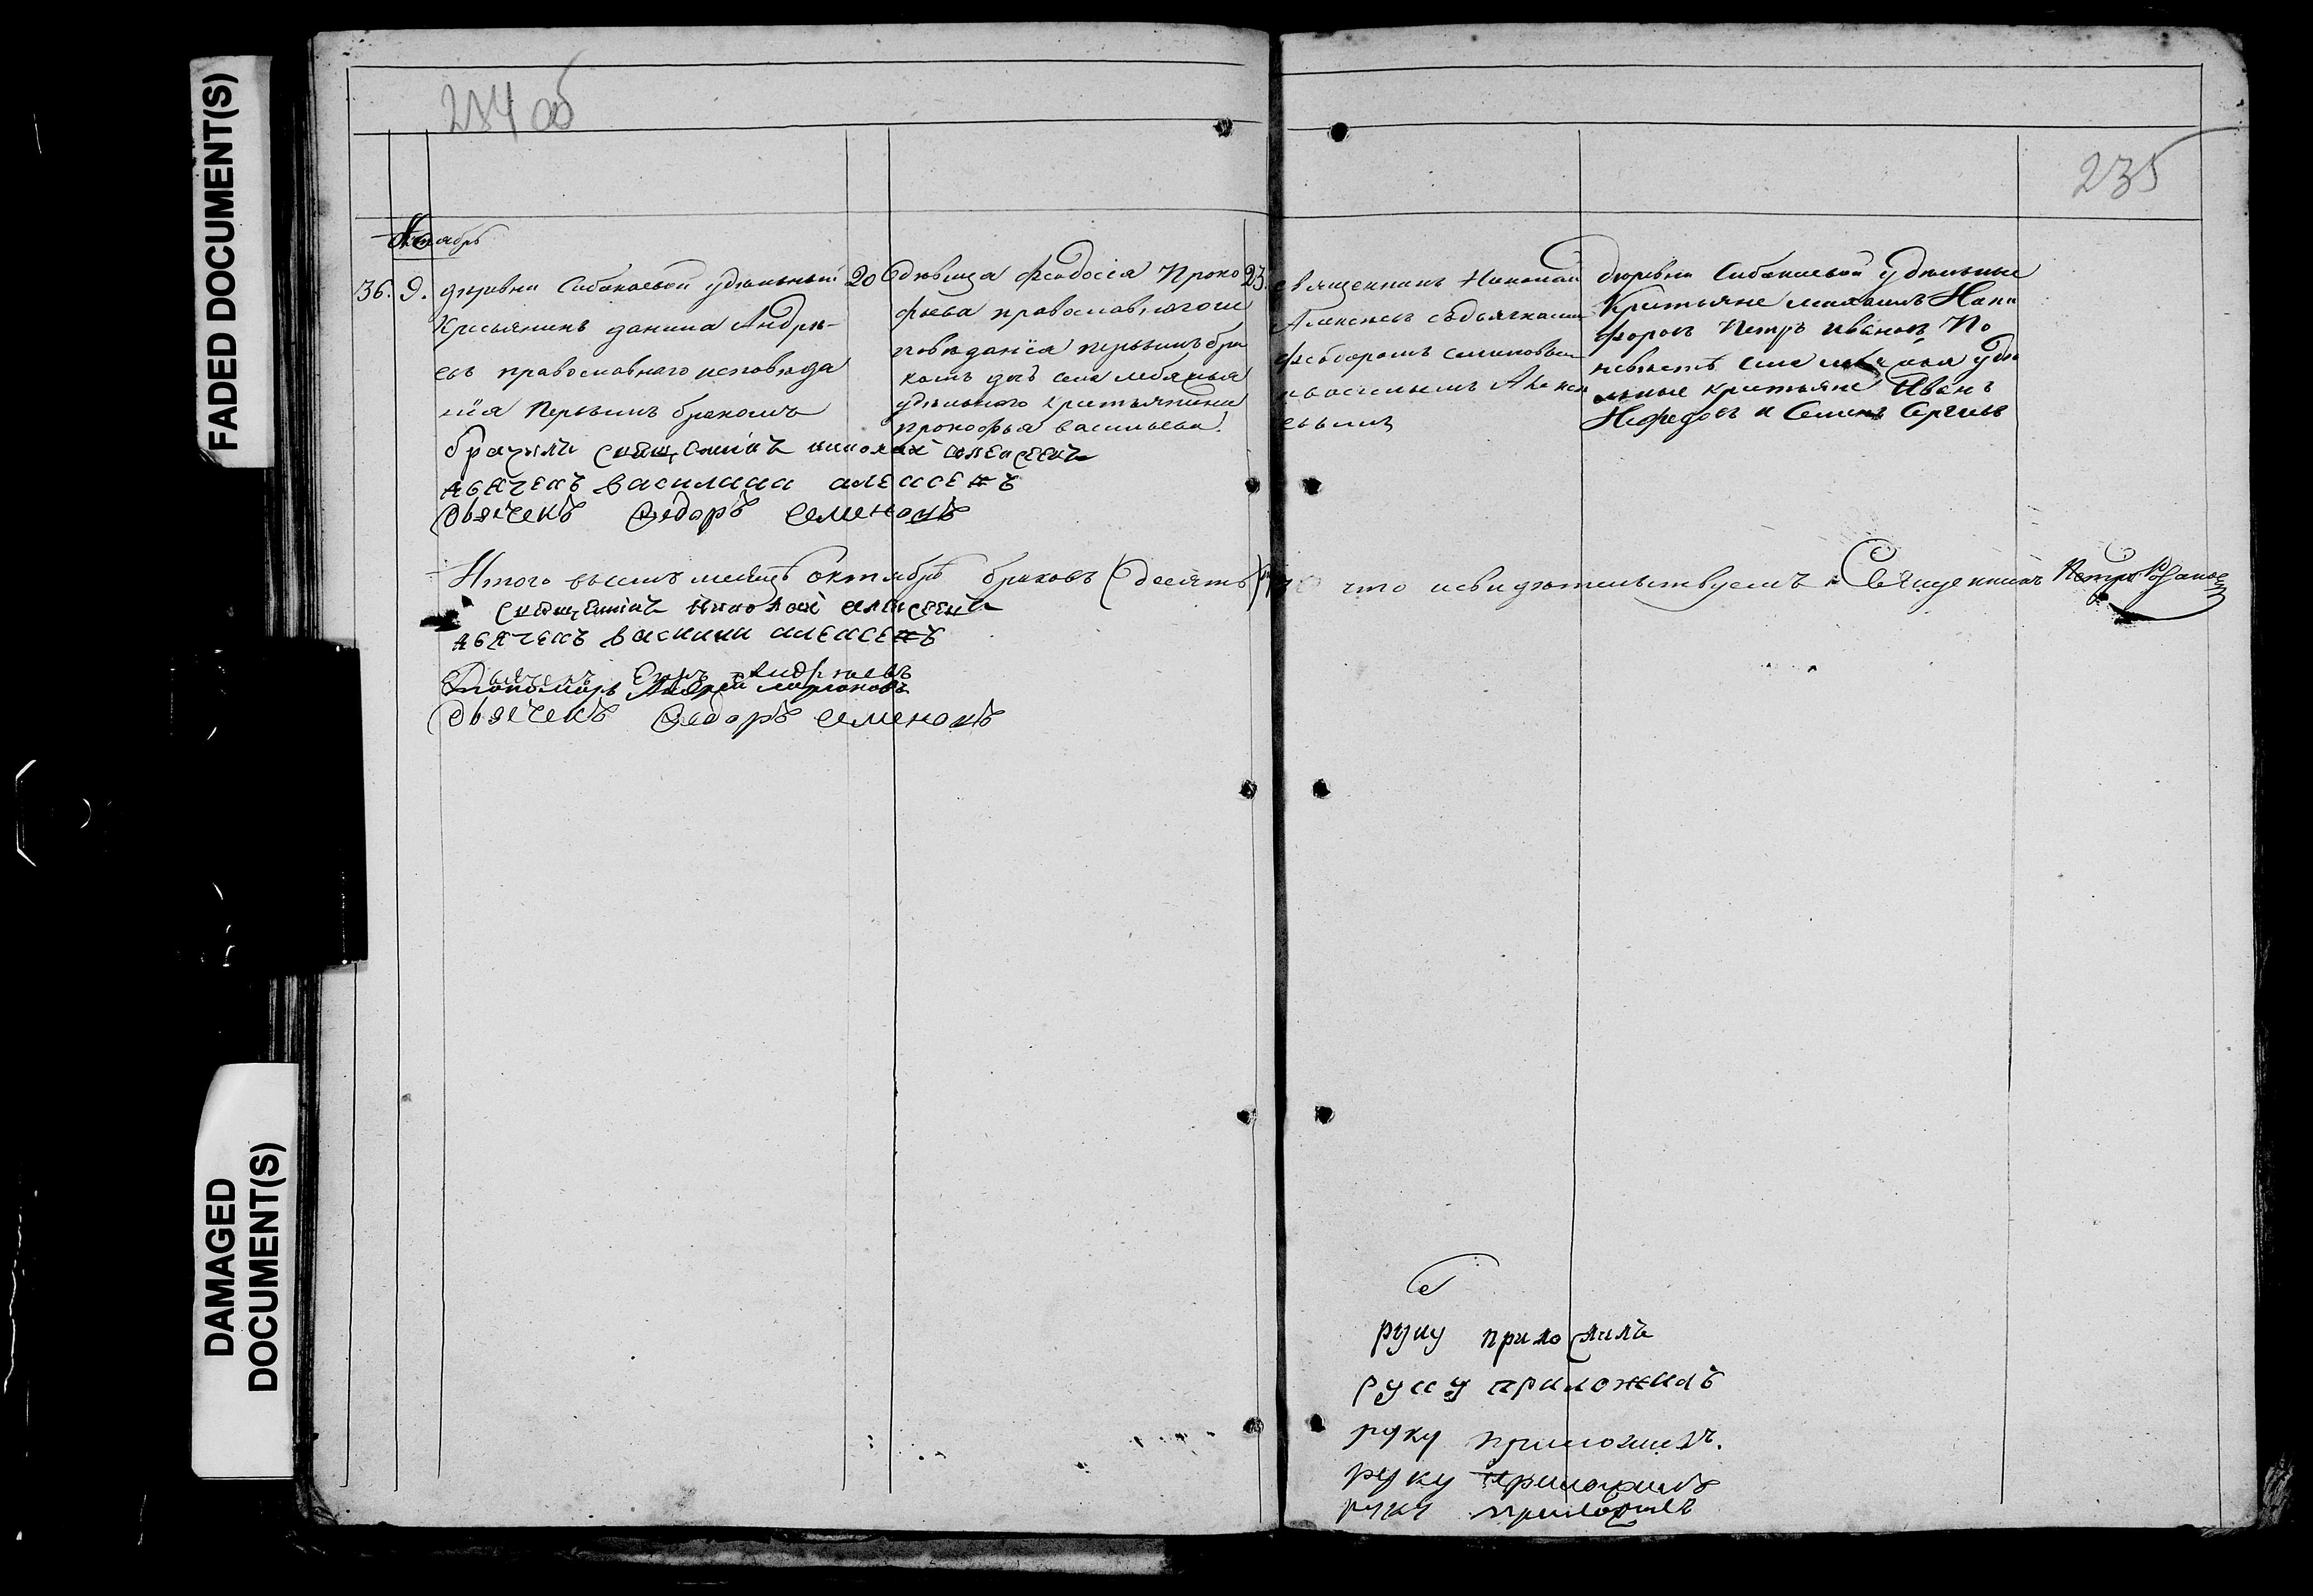 FADED DOCUMENT(S)
DAMAGED DOCUMENT(S)
234 об
235
Октябрь
36. 9. деревни Сабакаевой удельный
крестьянинъ данила Андре-
евъ православнаго исповеда
нія Первымъ бракомъ
20
девица Феодосія Проко
фьева православнаго ис
поведанія первымъ бра
комъ дчь села лебяжья
удельнаго крестьянина
прокофья васильева.
23.
священникъ Николай
Алексеевъ съдьячками
Феодоромъ семеновым
и васильемъ Алексе
евымъ
деревни Сабакаевой удельные
Крестьяне Михаилъ Ники
форовъ Петръ Ивановъ По
невесте села удѣ
льные крестьяне Иванъ
Нефедовъ и Семенъ Сергеевъ
браузыли священникъ николай алексеевъ
дьячекъ василий алексеевъ
дьячекъ Федоръ Семеновъ
Итого въсемъ месяце Октябре браковъ (десять) что и свидетельствуемъ Священникъ Петръ Розановъ
священникъ николай алексеевъ
дьячекъ василий алексеевъ
Дьячекъ Андреевъ
Пономарь Андрей
дьячекъ Федоръ Семеновъ
руку приложилъ
руку приложилъ
руку приложилъ.
руку приложилъ
руку приложилъ